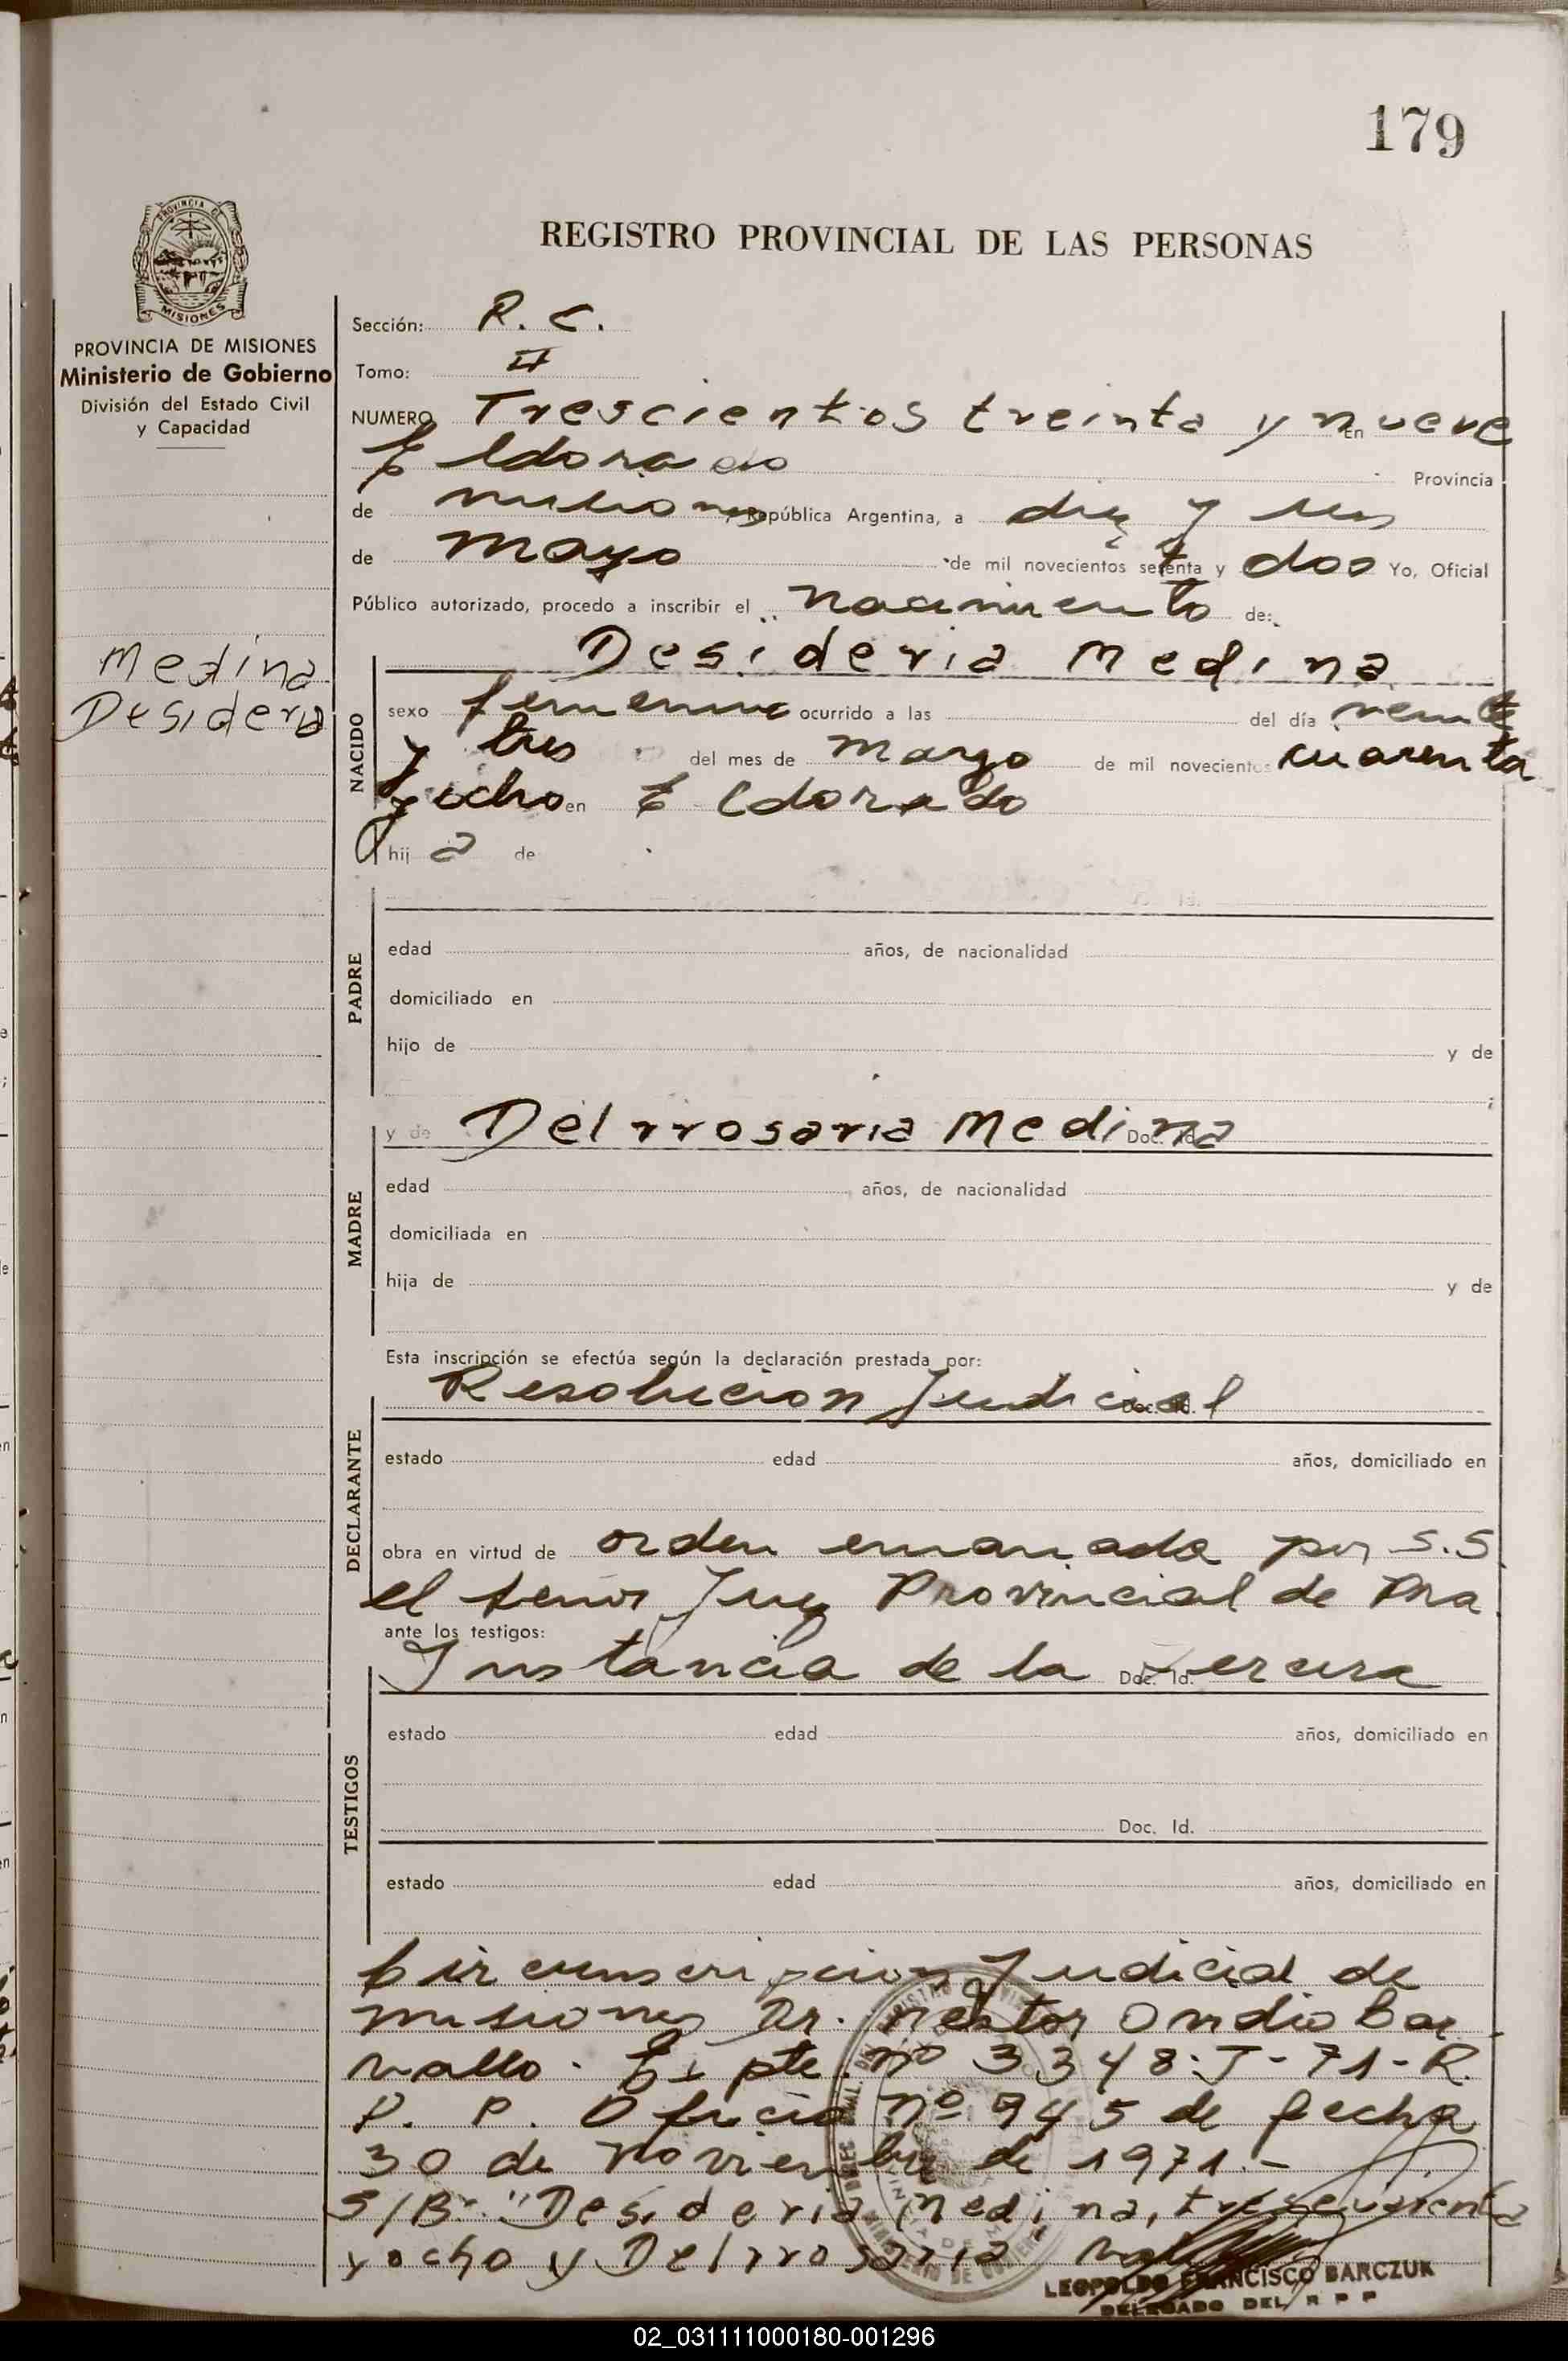 179
REGISTRO PROVINCIAL DE LAS PERSONAS
PROVINCIA DE MISIONES
Ministerio de Gobierno
División del Estado Civil
y Capacidad
Medina
Desideria
Sección: R. C.
Tomo: II
NUMERO Trescientos treinta y nueve En
Eldorado Provincia
de misiones República Argentina, a diez y seis
de mayo de mil novecientos setenta y dos Yo, Oficial
Público autorizado, procedo a inscribir el nacimiento de:
Desideria Medina
NACIDO
sexo femenino ocurrido a las del día veinte
y tres del mes de marzo de mil novecientos cuarenta
y ocho en Eldorado
hij a de
PADRE
edad años, de nacionalidad
domiciliado en
hijo de y de
y de Delrrosaria Medina Doc. Id.
MADRE
edad años, de nacionalidad
domiciliada en
hija de y de
Esta inscripción se efectúa según la declaración prestada por:
Resolucion Judicial Doc. Id.
DECLARANTE
estado edad años, domiciliado en
obra en virtud de orden emanada por S.S
el señor Juez Provincial de Pra
ante los testigos:
Instancia de la Tercera Doc. Id.
TESTIGOS
estado edad años, domiciliado en
Doc. Id.
estado edad años, domiciliado en
Circunscripcion Judicial de
misiones Dr. Nestor Ovidio Bar
vallo. Expte. nº 3348-J-71-R.
P. P. Oficio nº 945 de fecha
30 de Noviembre de 1971.-
S/B: "Desideria Medina, cuarenta
y ocho y Delrrosaria
LEOPOLDO FRANCISCO BARCZUK
DELEGADO DEL R P P
02_031111000180-001296